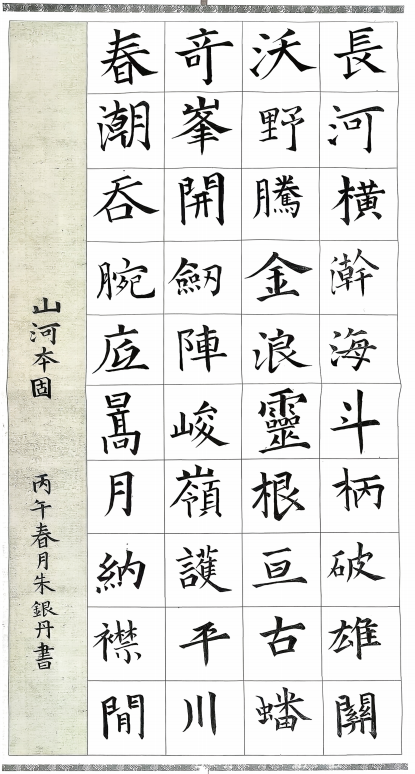 長河橫瀚海斗柄破雄關
沃野騰金浪靈根亘古蟠
奇峯開劒陣峻嶺護平川
春潮吞腕底暠月納襟閒
山河本固
丙午春月朱銀丹書